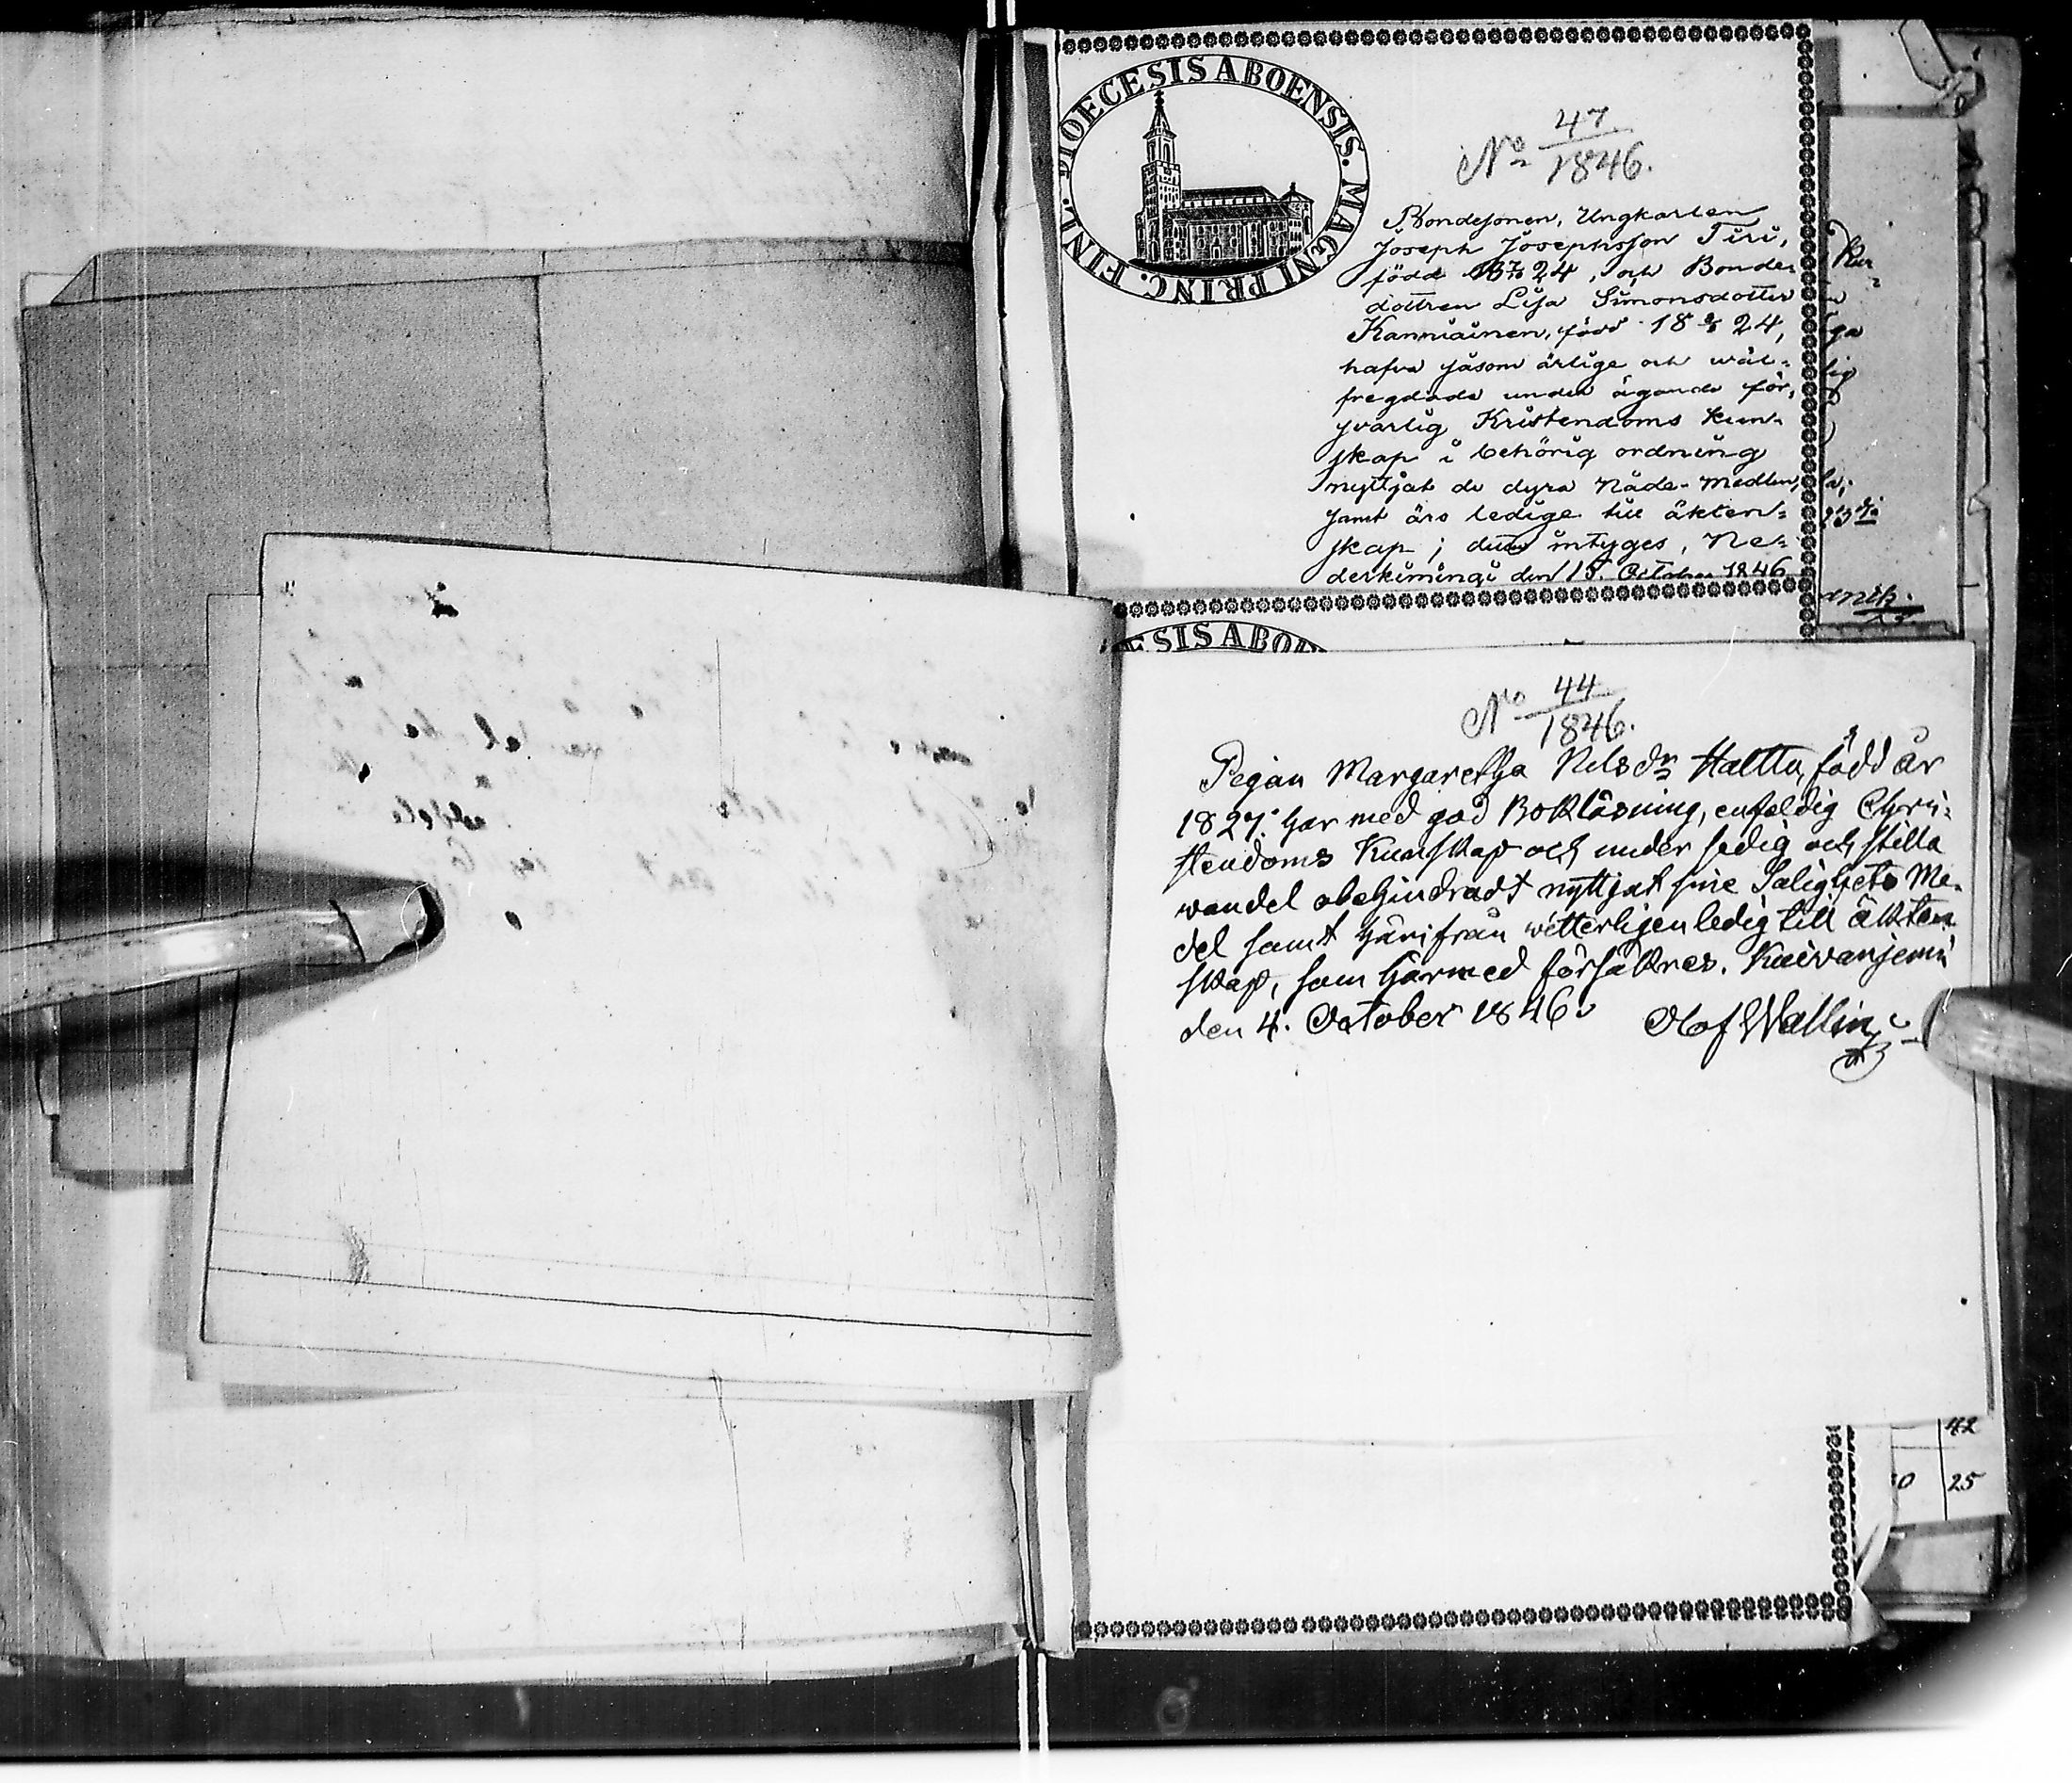 DIOECESIS ABOENSIS. MAGNI PRINC. FINL.
No 47
1846.
Bondesonen, Ungkarlen
Joseph Josephsson Tiri,
född 18 24, och Bonde-
dottren Lisa Simonsdotter
Kanniainen, född 18 24,
hafva såsom ärlige och wäl-
fregdade under ägande för-
svarlig Kristendoms kun-
skap i behörig ordning
nyttjat de dyra Nåde-Medlen,
samt äro ledige till äkten-
skap; intyges, Ne-
derkimingi den 15. October 1846
ESIS ABOE
No 44
1846.
Pigan Margaretha Nilsdr Haltta, född år
1827. har med god Bokläsning, enfaldig Chri-
stendoms Kunskap och under sedig och stilla
wandel obehindradt nyttjat sine Salighets Me-
del samt härifrån wetterligen ledig till äkten-
skap, som härmed försäkras. Kuivaniemi
den 4. October 1846.
Olof Wallin
42
25